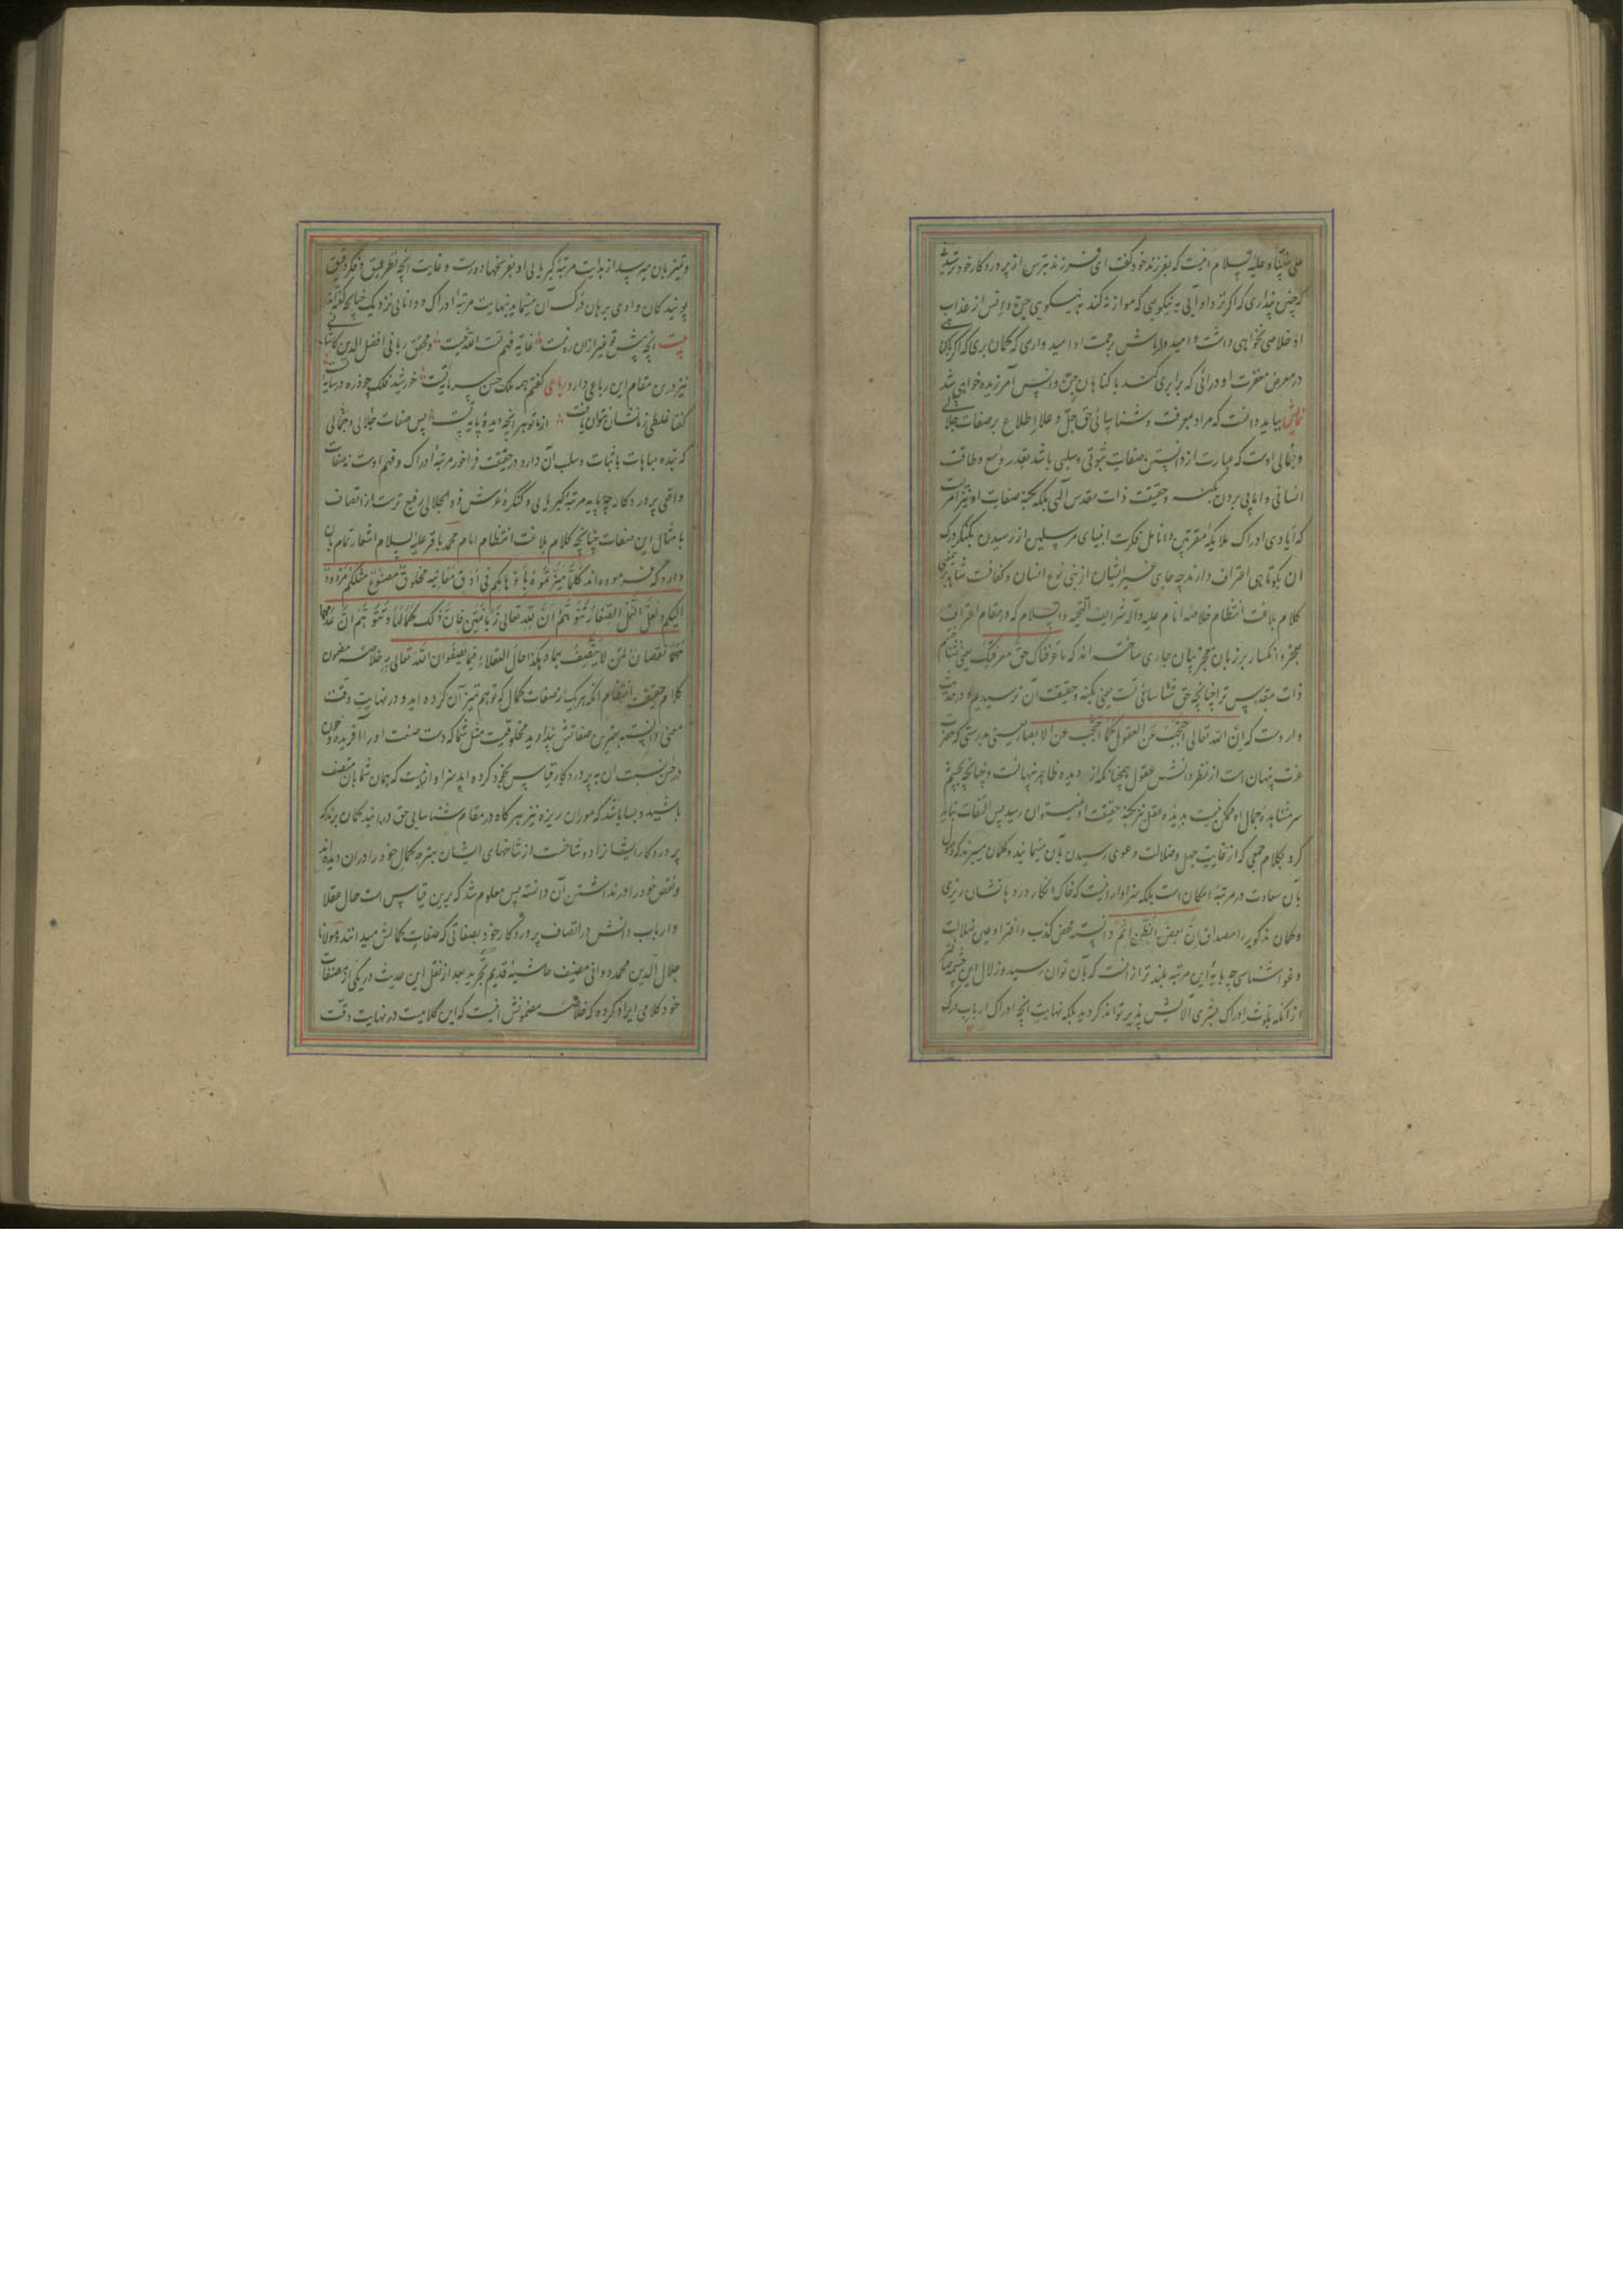 علی نبینا و علیه السلام اینست که بفرزند خود گفت ای فرزند بترس از پروردگار خود ترسیدنی
که چنین پنداری که اگر نزد او آیی به نیکویی که موازنه کند به نیکویی جن و انس از عذاب
او خلاصی نخواهی داشت و امیدوار باش برحمت او امیدواری که گمان بری که اگر با گناهی
در معرض مغفرت او درآئی که برابری کند با گناهان جن و انس آمرزیده خواهی شد
بباید دانست که مراد بمعرفت و شناسائی حق جل و علا اطلاع بر صفات جلالی
و جمالی اوست که عبارت از دانستن صفات ثبوتی و سلبی باشد بقدر وسع و طاقت
انسانی و اما پی بردن بکنه و حقیقت ذات مقدس الهی بلکه بکنه صفات او نیز امریست
که ایادی ادراک ملایکه مقربین و انامل فکرت انبیای مرسلین از رسیدن بکنگر درک
آن بکوتاهی اعتراف دارند چه جای غیر ایشان از بنی نوع انسان و کفاست شاهد برین معنی
کلام بلاغت انتظام خلاصه انام علیه و آله شرایف التحیه والسلام که در مقام اعتراف
بعجز و انکسار بر زبان معجز بیان جاری ساخته اند که ما عرفناک حق معرفتک یعنی نشناختیم
ذات مقدس ترا چنانچه حق شناسائی تست یعنی بکنه و حقیقت آن نرسیدیم و در حدیث
واردست که ان الله تعالی احتجب عن العقول کما احتجب عن الابصار یعنی بدرستی که حضرت
عزت پنهان است از نظر دانش عقول همچنانکه از دیده ظاهر پنهانست و چنانچه بچشم
سر مشاهده جمال او ممکن نیست بدیده عقل نیز بکنه حقیقت او نیستوان رسید پس التفات نباید
کرد بکلام جمعی که از غایت جهل و ضلالت دعوی رسیدن بآن مینمایند و گمان میبرند که وصول
بآن سعادت در مرتبه امکان است بلکه سزاوار اینست که خاک انکار در دهانشان ریزی
و گمان مذکور را مصداق ان بعض الظن اثم دانسته محض کذب و افترا و عین ضلالت
و غوا شناسی چه پایه این مرتبه بلندتر از انست که بآن توان رسید و زلال این چشمه صافتر
از آنکه بلوث ادراک بشری آلایش پذیر تواند گردید بلکه نهایت آنچه ادراک ارباب درک
و تمیز بان میرسد از بدایت مرتبه کبریایی او بفرسخها دورست و غایت آنچه نظر عمیق و فکر دقیق
پویندکان وادی برهان درک آن مینماید بنهایت مرتبه ادراک و دانایی نزدیک چنانچه گفته اند
بیت آنچه پیش تو غیر ازان ره نیست غایة فهم تست الله نیست و محقق ربانی افضل الدین کاشانی
نیز درین مقام این رباعی دارد رباعی گفتم همه ملک حسن سرمایه تست خورشید فلک چو ذره در سایه تست
گفتا غلطی ز ما نشان نتوان یافت از ما تو هر آنچه دیده پایه تست پس صفات جلالی و جمالی
که بنده مباهات باثبات و سلب آن دارد در حقیقت فراخور مرتبه ادراک و فهم اوست نه صفات
واقعی پروردگار چه پایه مرتبه کبریایی و کنگره عرش ذو الجلالی رفیع ترست از اتصاف
بامثال این صفات چنانچه کلام بلاغت انتظام امام محمد باقر علیه السلام اشعار تمام بآن
دارد که فرموده اند کلما میزتموه باوهامکم فی ادق معانیه مخلوق مصنوع مثلکم مردود
الیکم و لعل النمل الصغار تتوهم ان لله تعالی زبانیتین فان ذلک کمالها و تتوهم ان عدمها
نقصان لمن لا یتصف بهما و هکذا حال العقلاء فیما یصفون الله تعالی به خلاصه مضمون
کلام حقیقت انتظام آنکه هر یک از صفات کمال که توهم تمیز آن کرده اید و در نهایت دقت
معنی دانسته بهترین صفاتش پنداوید مخلوقیست مثل شما که دست صنعت او را آفریده و چون
در حسن نسبت آن به پروردگار قیاس بخود کرده اید سزاوار آنست که همان شما بآن متصف
باشید و بسا باشد که موران ریزه نیز هرگاه در مقام شناسایی حق درآیند گمان برند که
پروردگار ایشان را دو شاخست از شاخهای ایشان بهتر چه کمال خود را در ان دیده اند
و نقص خود را در نداشتن آن دانسته پس معلوم شد که برین قیاس است حال عقلا
و ارباب دانش در اتصاف پروردگار خود بصفاتی که صفات کمالش میدانند و مولانا
جلال الدین محمد دوانی مصنف حاشیه قدیم تجرید بعد از نقل این حدیث در یکی از مصنفات
خود کلامی ایراد کرده که خلاصه مضمونش اینست که این کلامیست در نهایت دقت